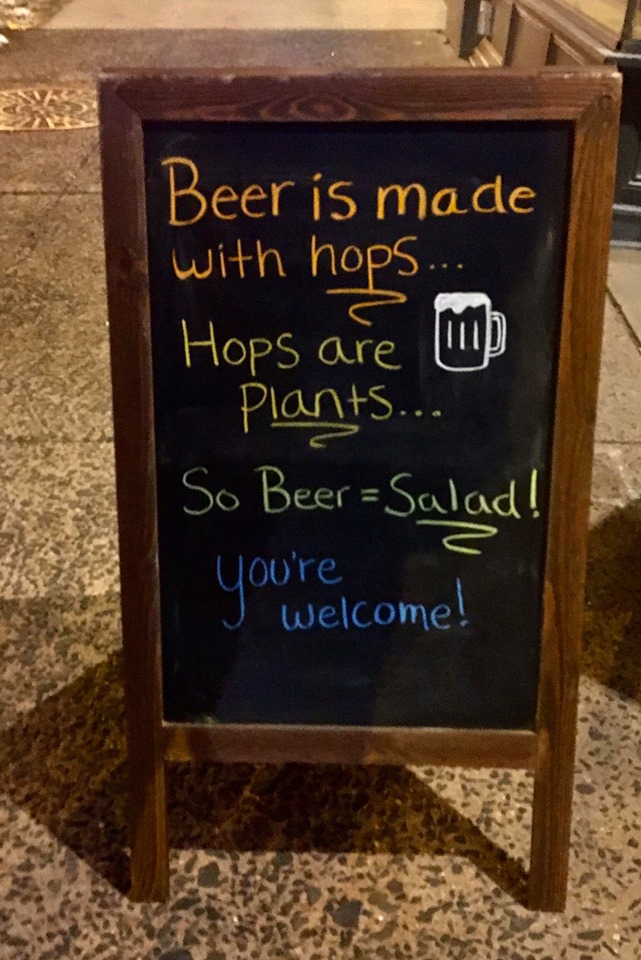 Beer is made
with hops...
Hops are
Plants...
So Beer = Salad!
You're
welcome!